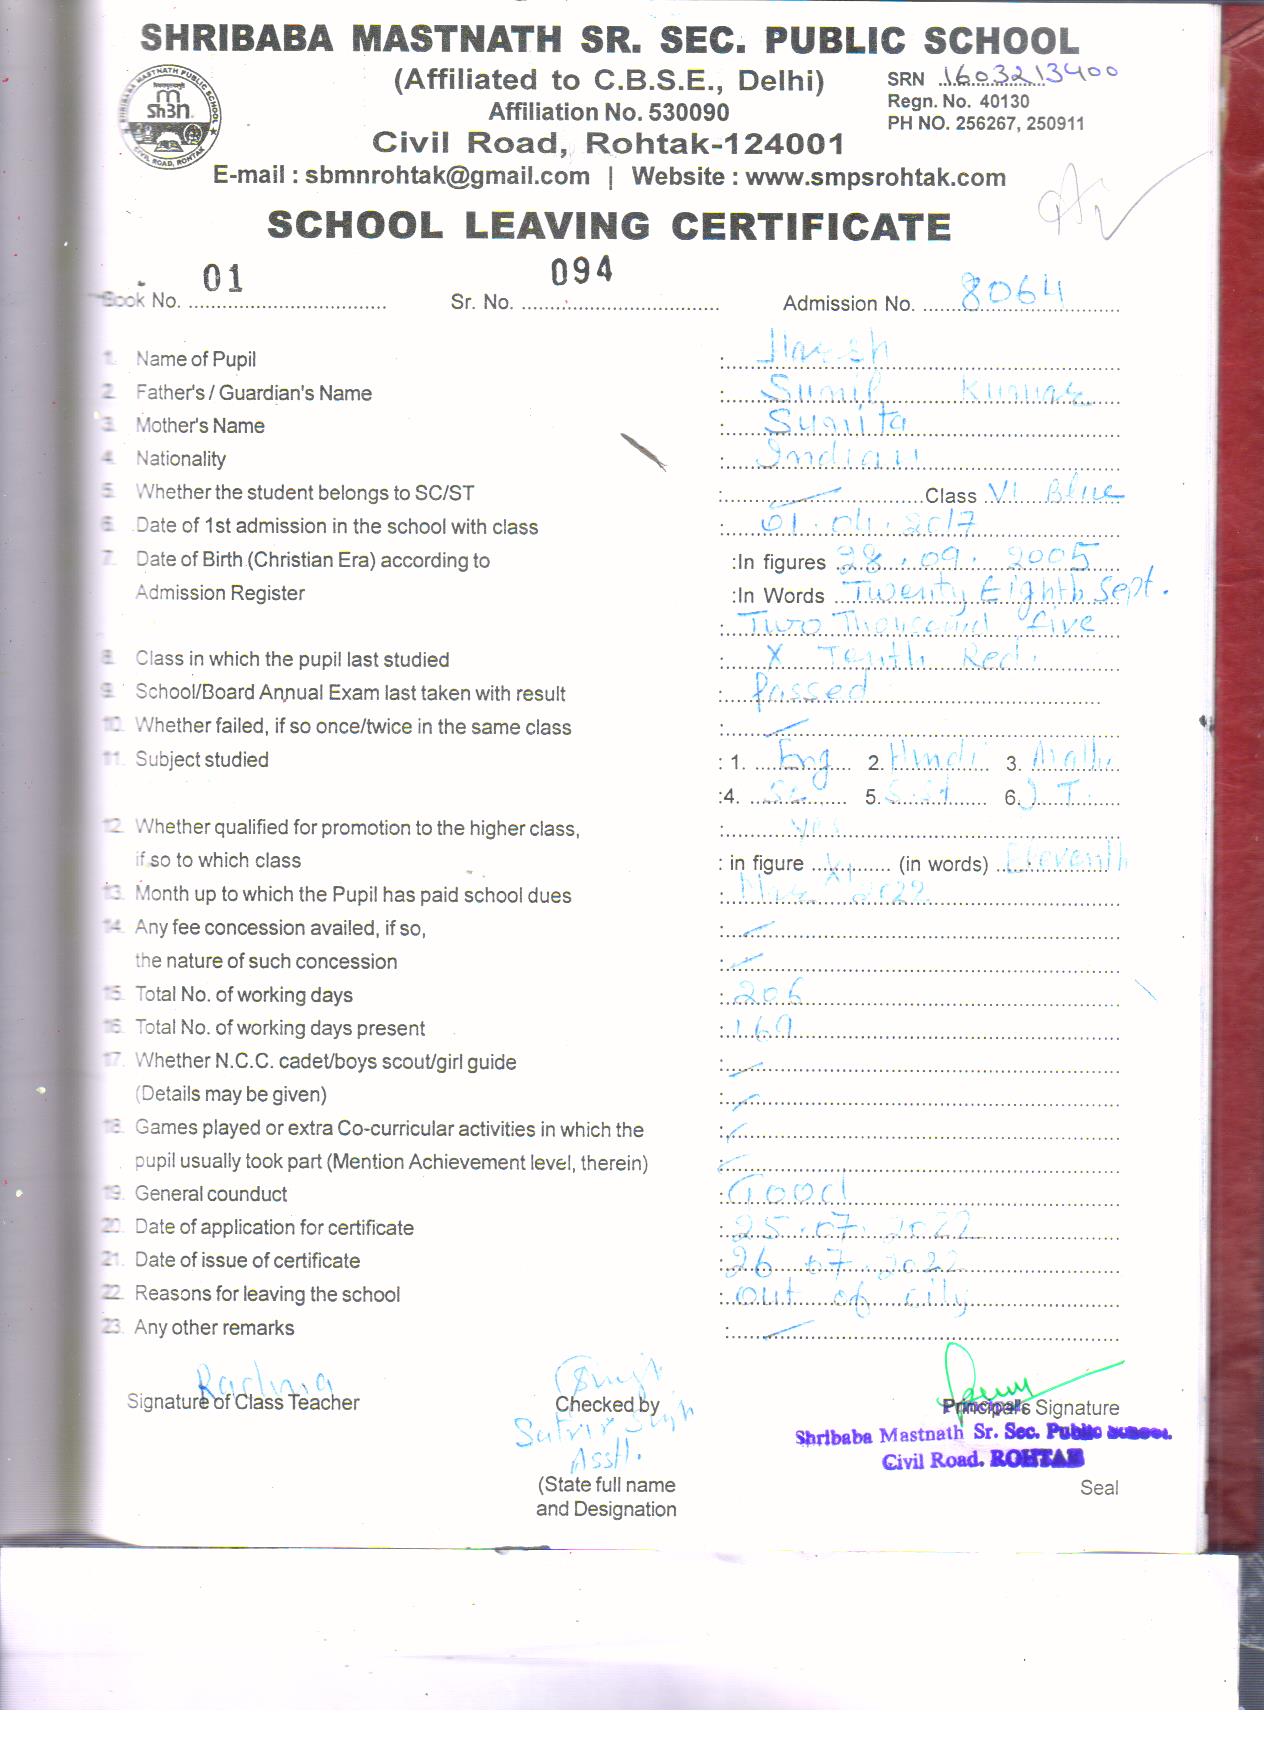 SHRIBABA MASTNATH SR. SEC. PUBLIC SCHOOL
(Affiliated to C.B.S.E., Delhi)
SRN 1603213400
Affiliation No. 530090
Regn. No. 40130
PH NO. 256267, 250911
Civil Road, Rohtak-124001
E-mail : sbmnrohtak@gmail.com | Website : www.smpsrohtak.com
SCHOOL LEAVING CERTIFICATE
Book No. 01 Sr. No. 094 Admission No. 8064
1. Name of Pupil :
2. Father's / Guardian's Name : Sunil Kumar
3. Mother's Name : Sunita
4. Nationality : Indian
5. Whether the student belongs to SC/ST : Class VI Blue
6. Date of 1st admission in the school with class : 01.04.2017
7. Date of Birth (Christian Era) according to :In figures 28.09.2005
Admission Register :In Words Twenty Eighth Sept.
: Two Thousand five
8. Class in which the pupil last studied : X Tenth Red.
9. School/Board Annual Exam last taken with result : Passed
10. Whether failed, if so once/twice in the same class :
11. Subject studied : 1. Eng 2. Hindi 3. Math
:4. Sc. 5. S.St 6. I.T.
12. Whether qualified for promotion to the higher class, : yes
if so to which class : in figure XI (in words) Eleventh
13. Month up to which the Pupil has paid school dues : 2022
14. Any fee concession availed, if so, :
the nature of such concession :
15. Total No. of working days : 206
16. Total No. of working days present : 169
17. Whether N.C.C. cadet/boys scout/girl guide :
(Details may be given) :
18. Games played or extra Co-curricular activities in which the :
pupil usually took part (Mention Achievement level, therein) :
19. General counduct : Good
20. Date of application for certificate : 25.07.2022
21. Date of issue of certificate : 26.07.2022
22. Reasons for leaving the school : out of city
23. Any other remarks :
Rachna
Signature of Class Teacher Checked by Principal's Signature
Asstt.
Shribaba Mastnath Sr. Sec. Public School.
Civil Road. ROHTAK
(State full name Seal
and Designation